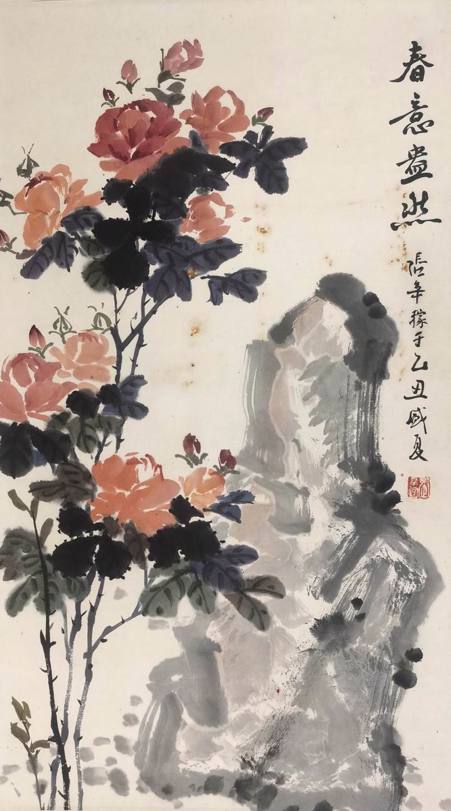 春意盎然
張辛稼于乙丑盛夏